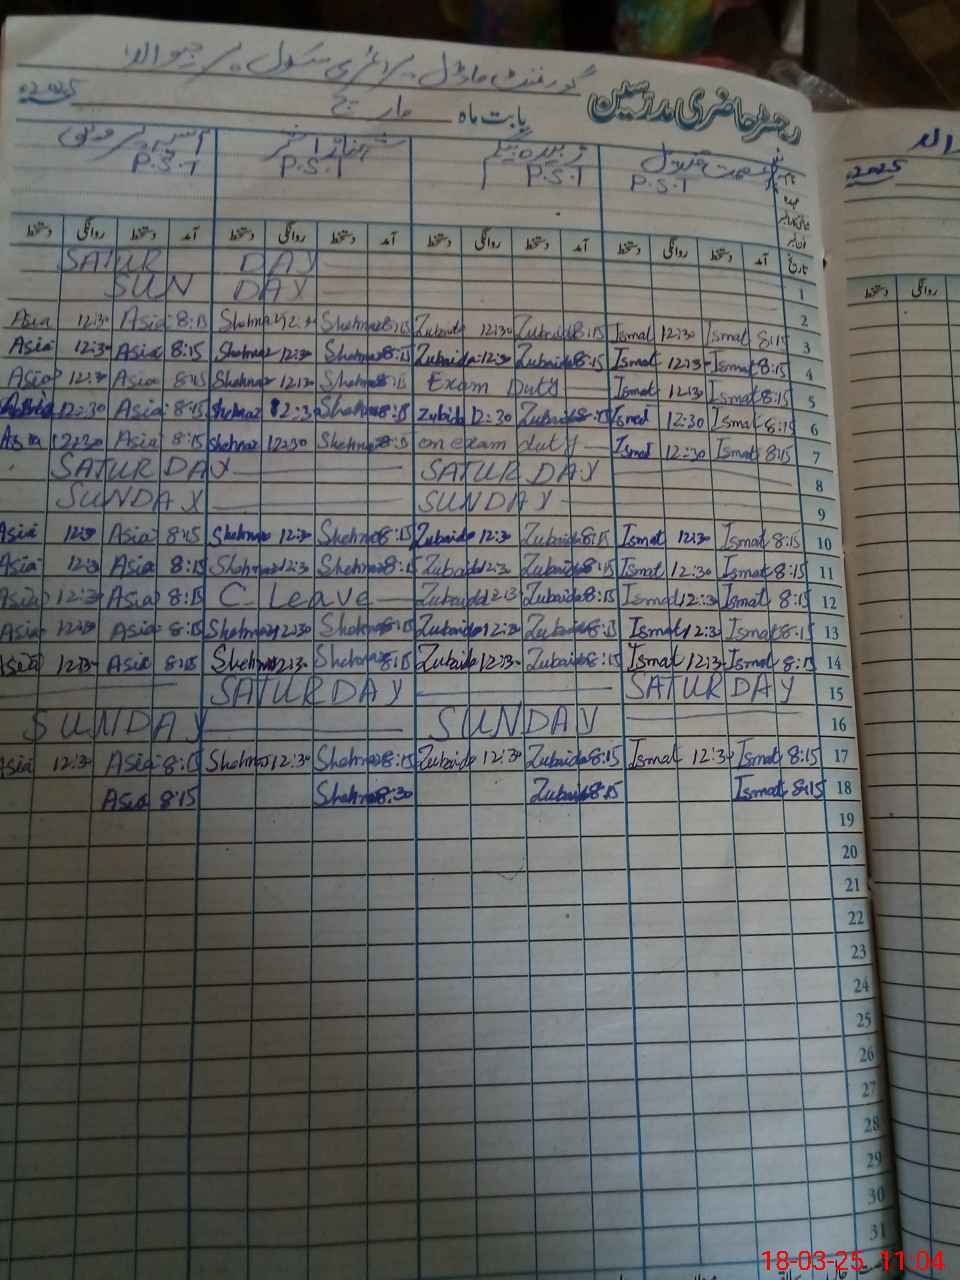 گورنمنٹ ماڈل پرائمری سکول
رجسٹر حاضری مدرسین
بابت ماہ مارچ 2025ء
عصمت بتول زبیدہ بیگم شہناز اختر آسیہ پروین
P.S.T P.S.T P.S.T P.S.T
تاریخ آمد دستخط روانگی دستخط آمد دستخط روانگی دستخط آمد دستخط روانگی دستخط آمد دستخط روانگی دستخط
SATUR DAY 1
SUN DAY 2
Asia 12:30 Asia 8:15 Shehnaz 12:30 Shehnaz 8:15 Zubaida 12:30 Zubaida 8:15 Ismat 12:30 Ismat 8:15 3
Asia 12:30 Asia 8:15 Shehnaz 12:30 Shehnaz 8:15 Zubaida 12:30 Zubaida 8:15 Ismat 12:30 Ismat 8:15 4
Asia 12:30 Asia 8:15 Shehnaz 12:30 Shehnaz 8:15 Exam Duty Ismat 12:30 Ismat 8:15 5
Asia 12:30 Asia 8:15 Shehnaz 12:30 Shehnaz 8:15 Zubida 12:30 Zubaida 8:15 Ismat 12:30 Ismat 8:15 6
Asia 12:30 Asia 8:15 Shehnaz 12:30 Shehnaz 8:15 on exam duty Ismat 12:30 Ismat 8:15 7
SATUR DAY SATUR DAY 8
SUNDAY SUNDAY 9
Asia 12:30 Asia 8:15 Shehnaz 12:30 Shehnaz 8:15 Zubaida 12:30 Zubaida 8:15 Ismat 12:30 Ismat 8:15 10
Asia 12:30 Asia 8:15 Shehnaz 12:30 Shehnaz 8:15 Zubaida 12:30 Zubaida 8:15 Ismat 12:30 Ismat 8:15 11
Asia 12:30 Asia 8:15 C. Leave Zubaida 12:30 Zubaida 8:15 Ismat 12:30 Ismat 8:15 12
Asia 12:30 Asia 8:15 Shehnaz 12:30 Shehnaz 8:15 Zubaida 12:30 Zubaida 8:15 Ismat 12:30 Ismat 8:15 13
Asia 12:30 Asia 8:15 Shehnaz 12:30 Shehnaz 8:15 Zubaida 12:30 Zubaida 8:15 Ismat 12:30 Ismat 8:15 14
SATUR DAY SATUR DAY 15
SUNDAY SUNDAY 16
Asia 12:30 Asia 8:15 Shehnaz 12:30 Shehnaz 8:15 Zubaida 12:30 Zubaida 8:15 Ismat 12:30 Ismat 8:15 17
Asia 8:15 Shehnaz 8:30 Zubaida 8:15 Ismat 8:15 18
19
20
21
22
23
24
25
26
27
28
29
30
31
2025ء
دستخط روانگی
18-03-25 11:04